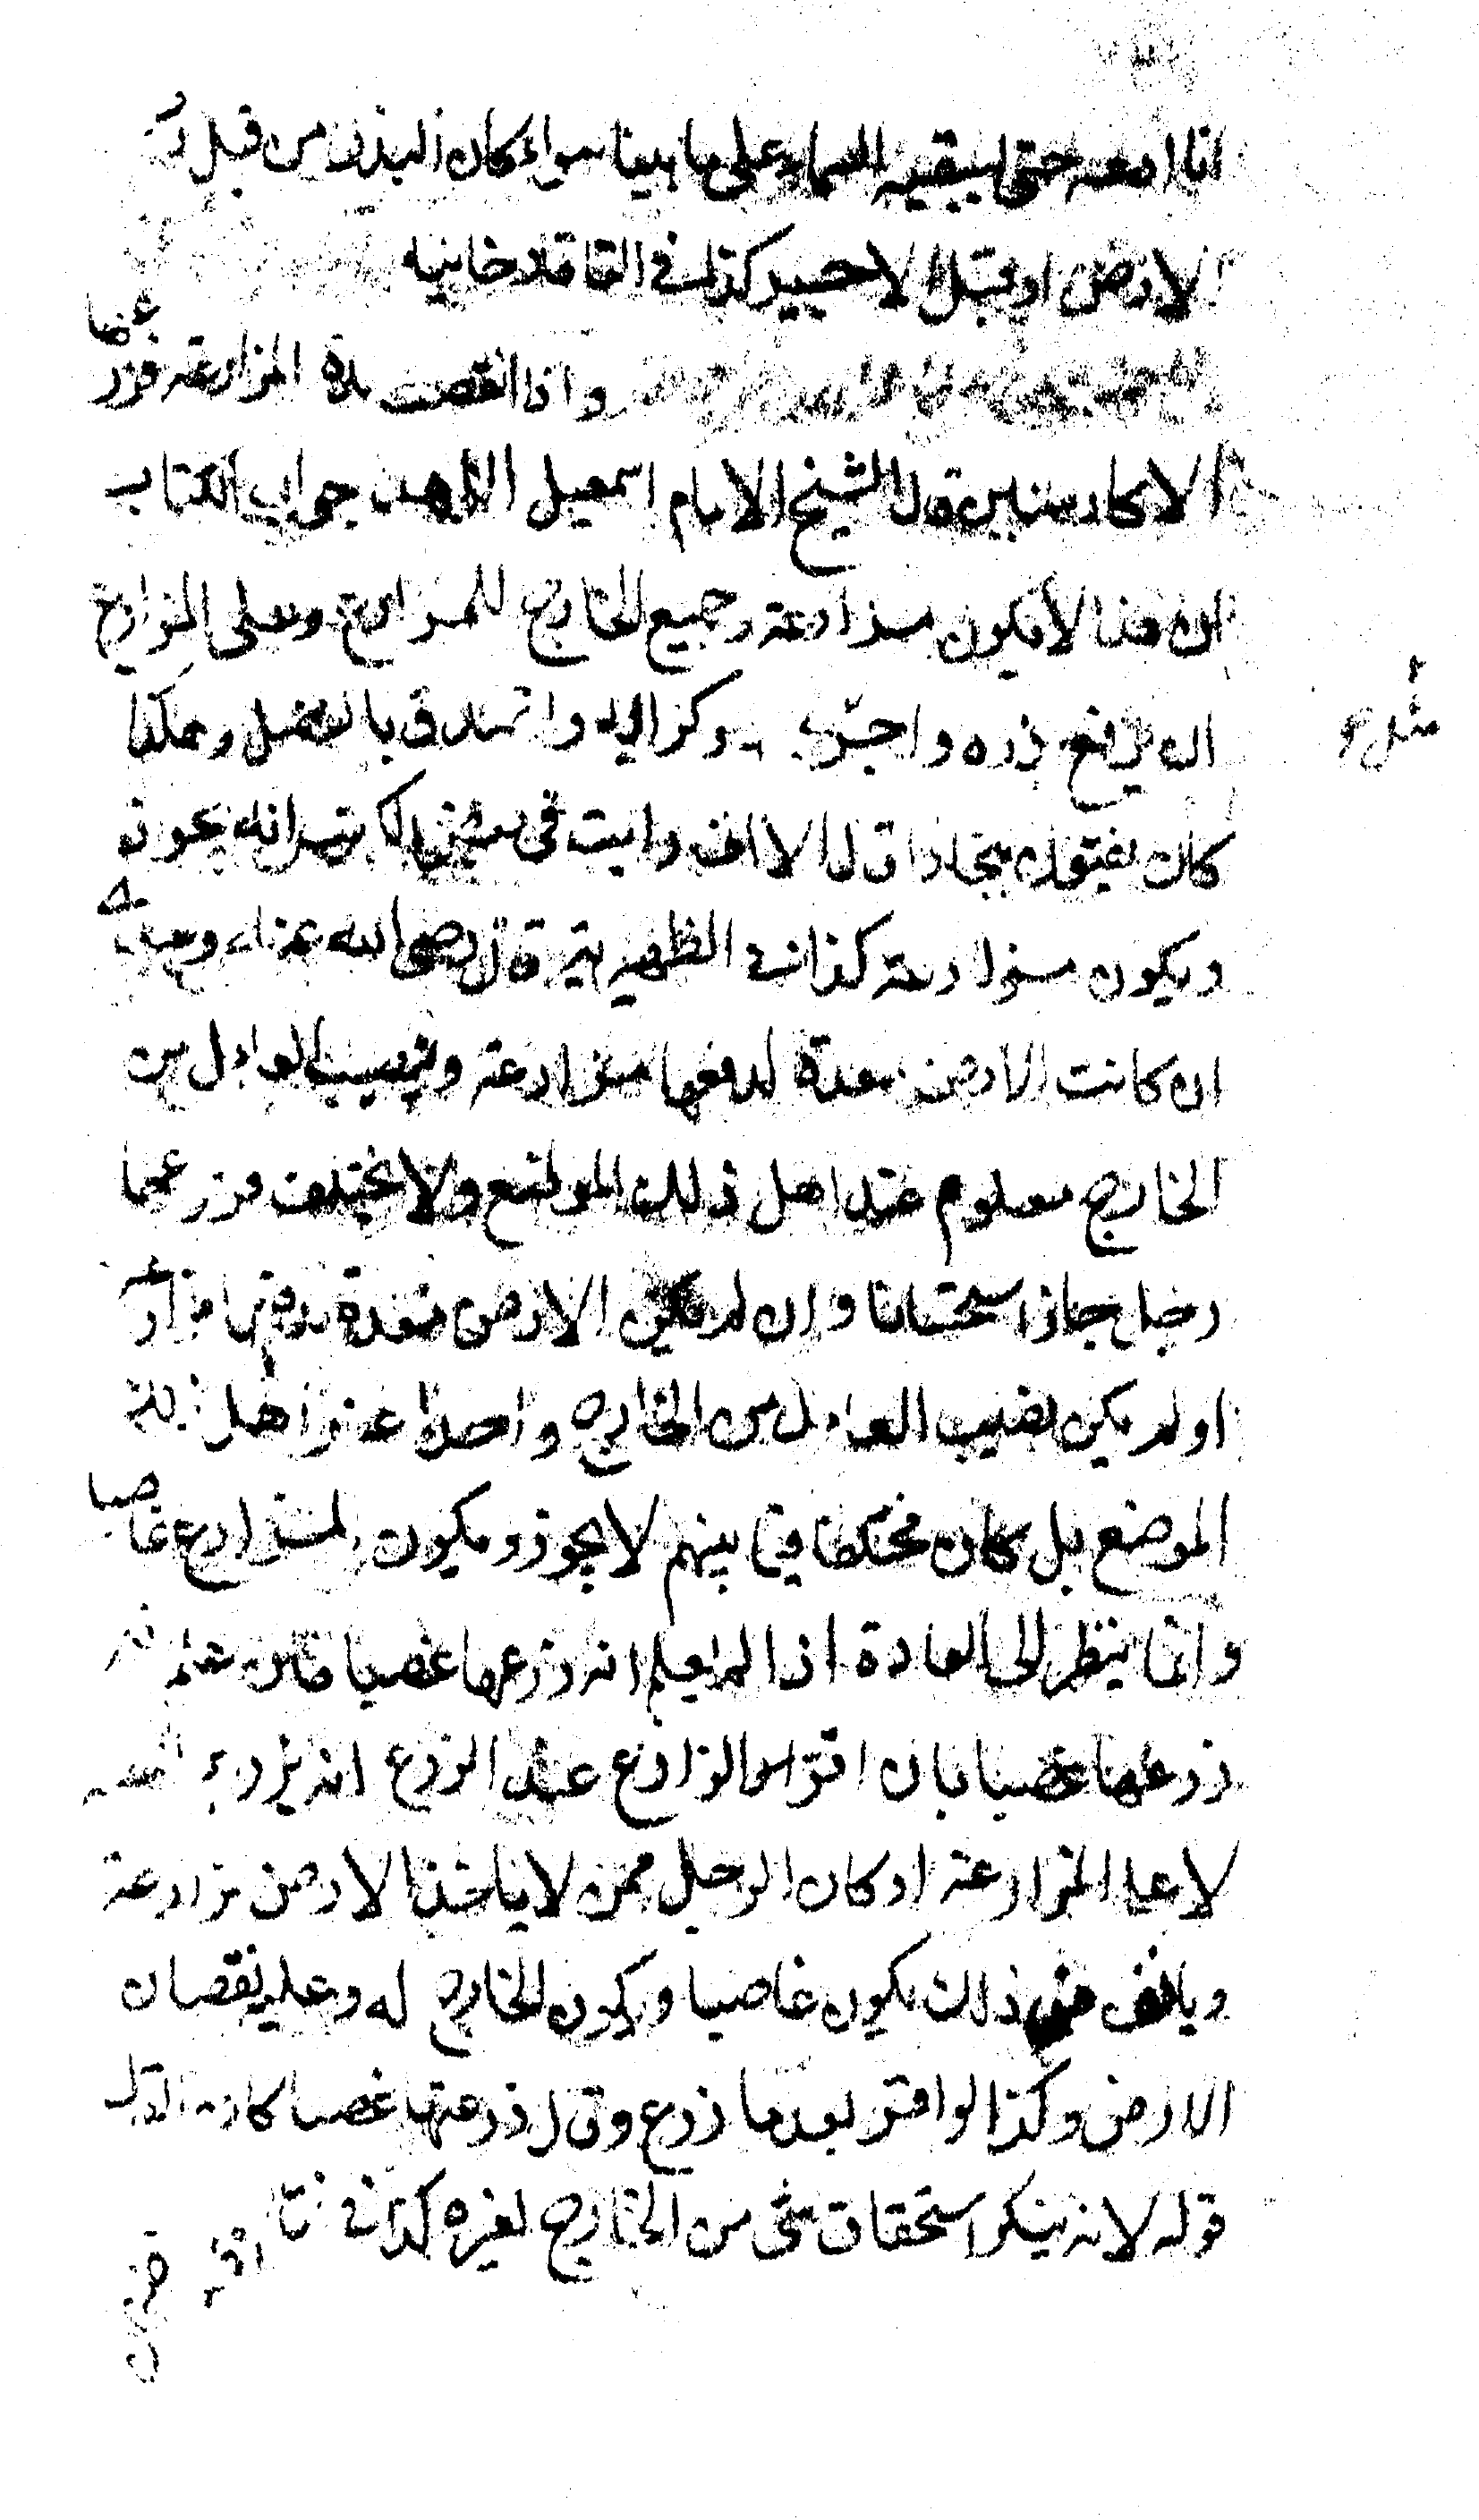 انا ادعه حتى يسقيه السماء على ما بينا سواء كان البذر من قبل رب
الارض او قبل الاجير كذا في التاتارخانيه
واذا انقضت مدة المزارعة فزرعها
الاكار سنين قال الشيخ الامام اسمعيل الزاهد جواب الكتاب
ان هذا لا يكون مزارعة وجميع الخارج للمزارع وعلى المزارع
ان يرفع بذره واجر وكراه وتصدق بالفضل وهكذا
مثل
كان يفتون ببخارا قال الا انى رايت في بعض الكتب انه يجوز
ويكون مزارعة كذا في الظهيرية قال رضى الله عنه وعندى
ان كانت الارض معدة لدفعها مزارعة ونصيب العامل من
الخارج معلوم عند اهل ذلك الموضع ولا يختلف فزرعها
رجل جاز استحسانا وان لم يكن الارض معدة لدفعها مزارعة
او لم يكن نصيب العامل من الخارج واحدا عند اهل ذلك
الموضع بل كان مختلفا فيما بينهم لا يجوز ويكون المزارع غاصبا
وانما ينظر الى العادة اذا لم يعلم انه زرعها غصبا فان علم انه
زرعها غصبا بان اقر الزارع عند الزرع انه يزرع لنفسه
لا على المزارعة او كان الرجل ممن لا ياخذ الارض مزارعة
ويانف من ذلك يكون غاصبا ويكون الخارج له وعليه نقصان
الارض وكذا لو اقر بعد ما زرع وقال زرعتها غصبا كان القول
قوله لانه ينكر استحقاق شئ من الخارج لغيره كذا في فتا